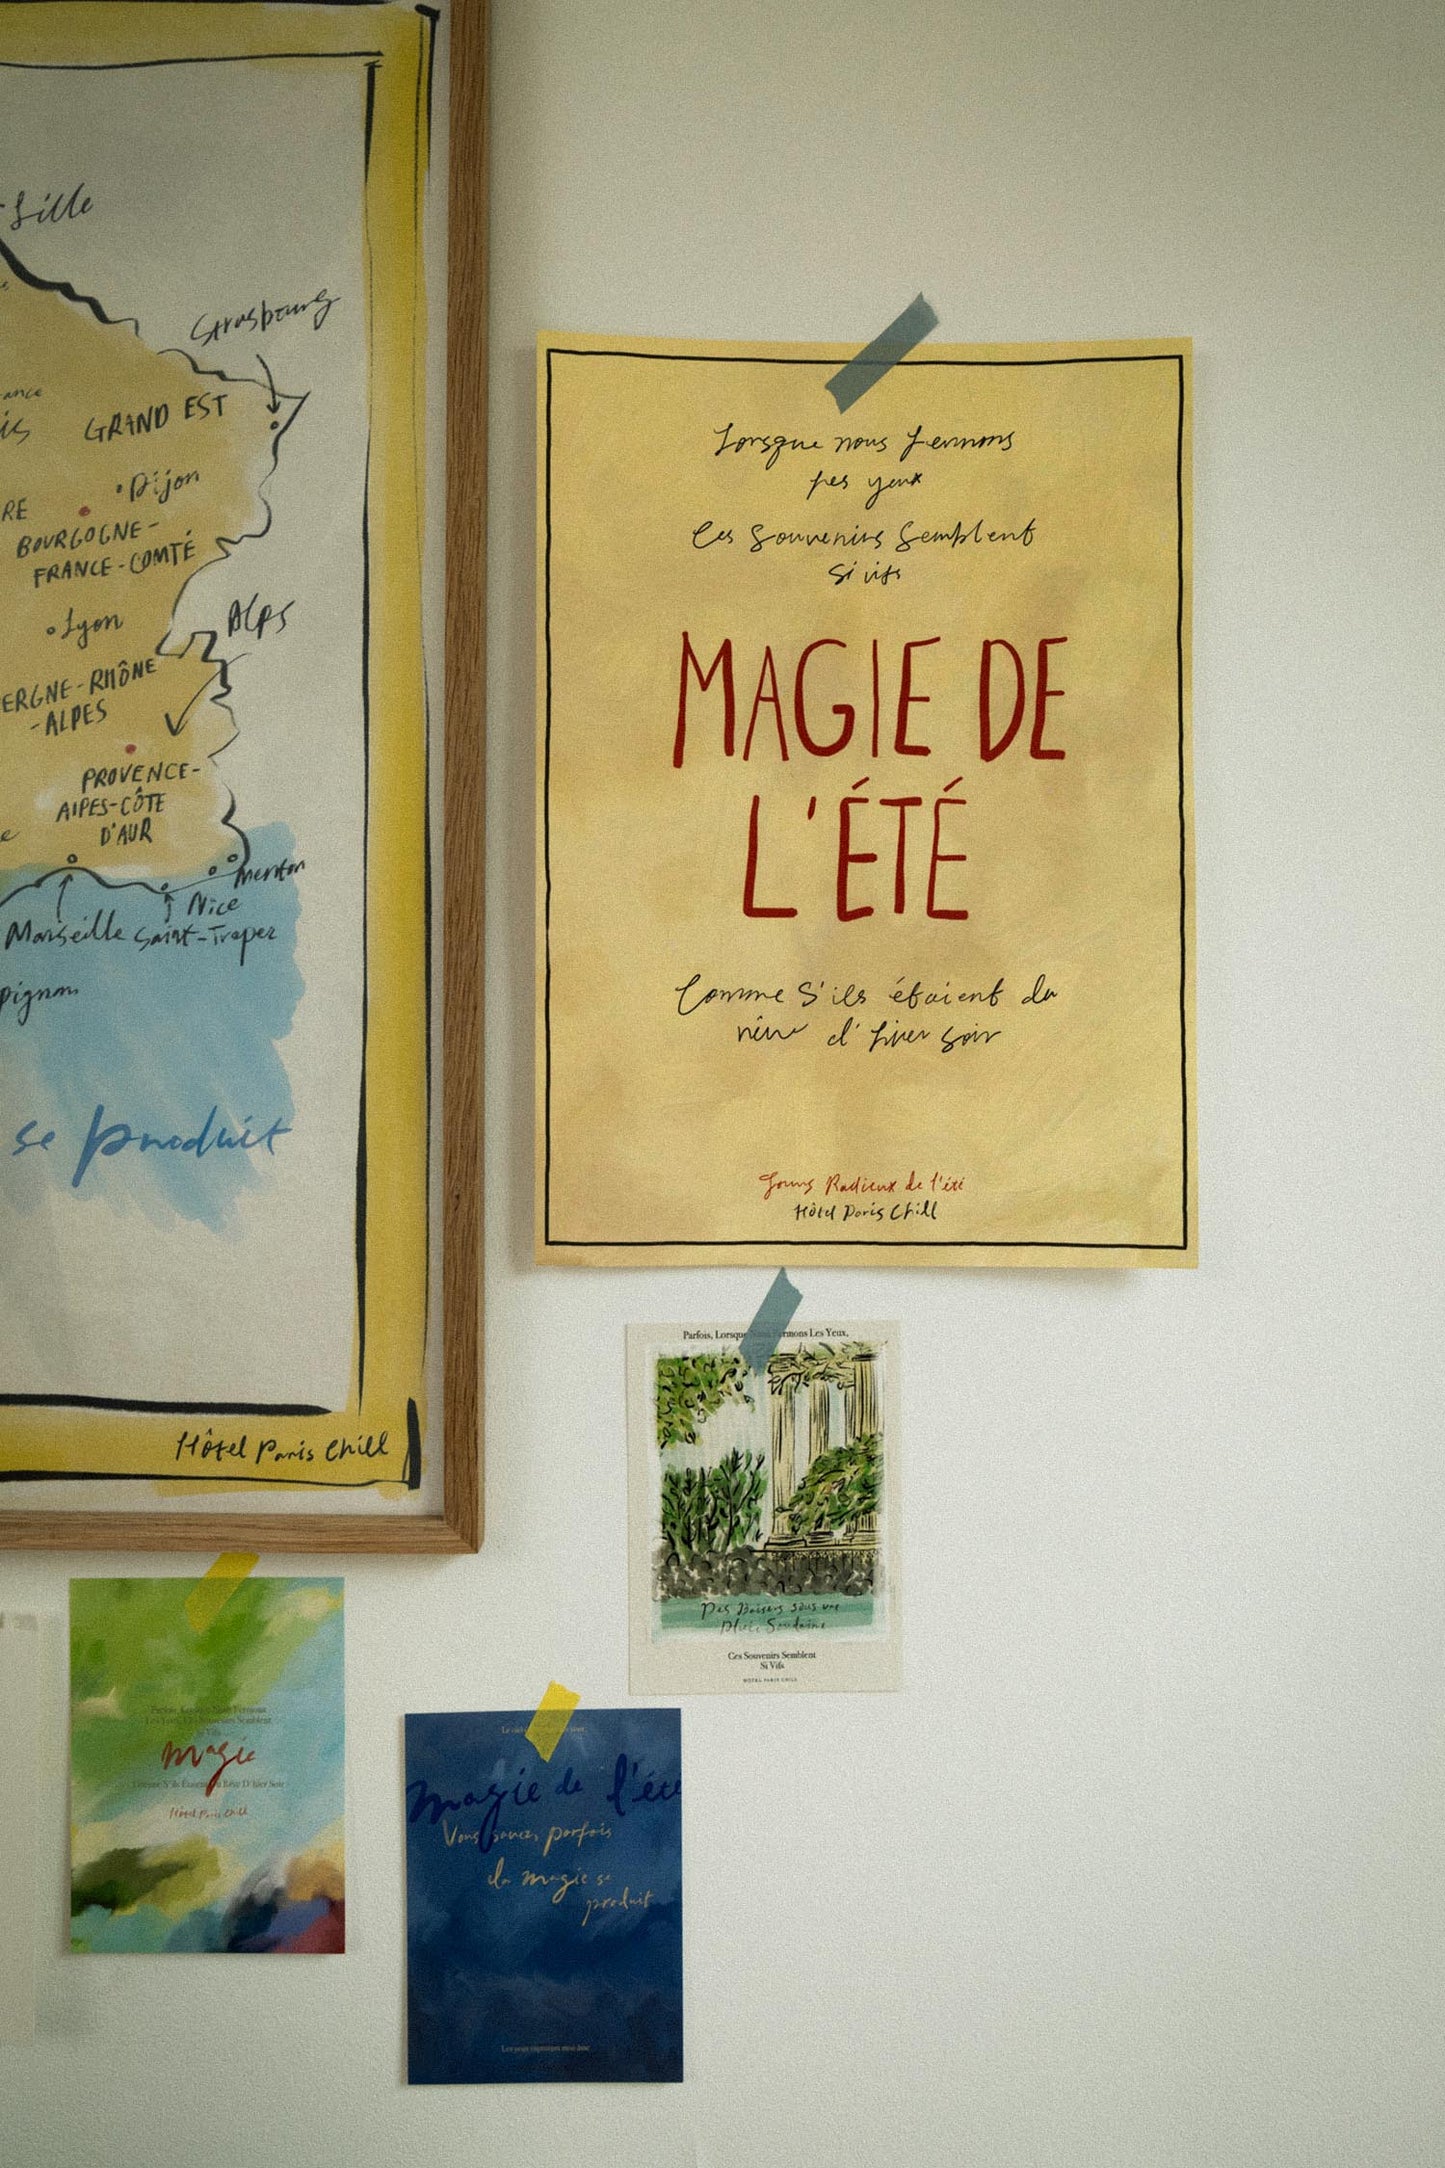 Lille
Strasbourg
GRAND EST
Dijon
BOURGOGNE-
FRANCE-COMTÉ
Lyon
ALPS
ERGNE-RHÔNE
-ALPES
PROVENCE-
AlPES-CÔTE
D'AUR
Menton
Nice
Marseille Saint-Tropez
pignan
se produit
Hôtel Paris Chill
Lorsque nous fermons
yeux
Ces Souvenirs Semblent
Si vifs
MAGIE DE
L'ÉTÉ
Comme S'ils étaient du
d'hier soir
Jours Radieux de l'été
Hôtel Paris Chill
Parfois, Lorsque Nous Fermons Les Yeux,
Des Baisers sous une
Pluie Soudaine
Ces Souvenirs Semblent
Si Vifs
HÔTEL PARIS CHILL
Parfois, Lorsque Nous Fermons
Les Yeux, Ces Souvenirs Semblent
Si Vifs
magie
Comme S'ils Étaient Du Rêve D'hier Soir
Hôtel Paris Chill
magie de l'été
Vous savez, parfois
la magie se
produit